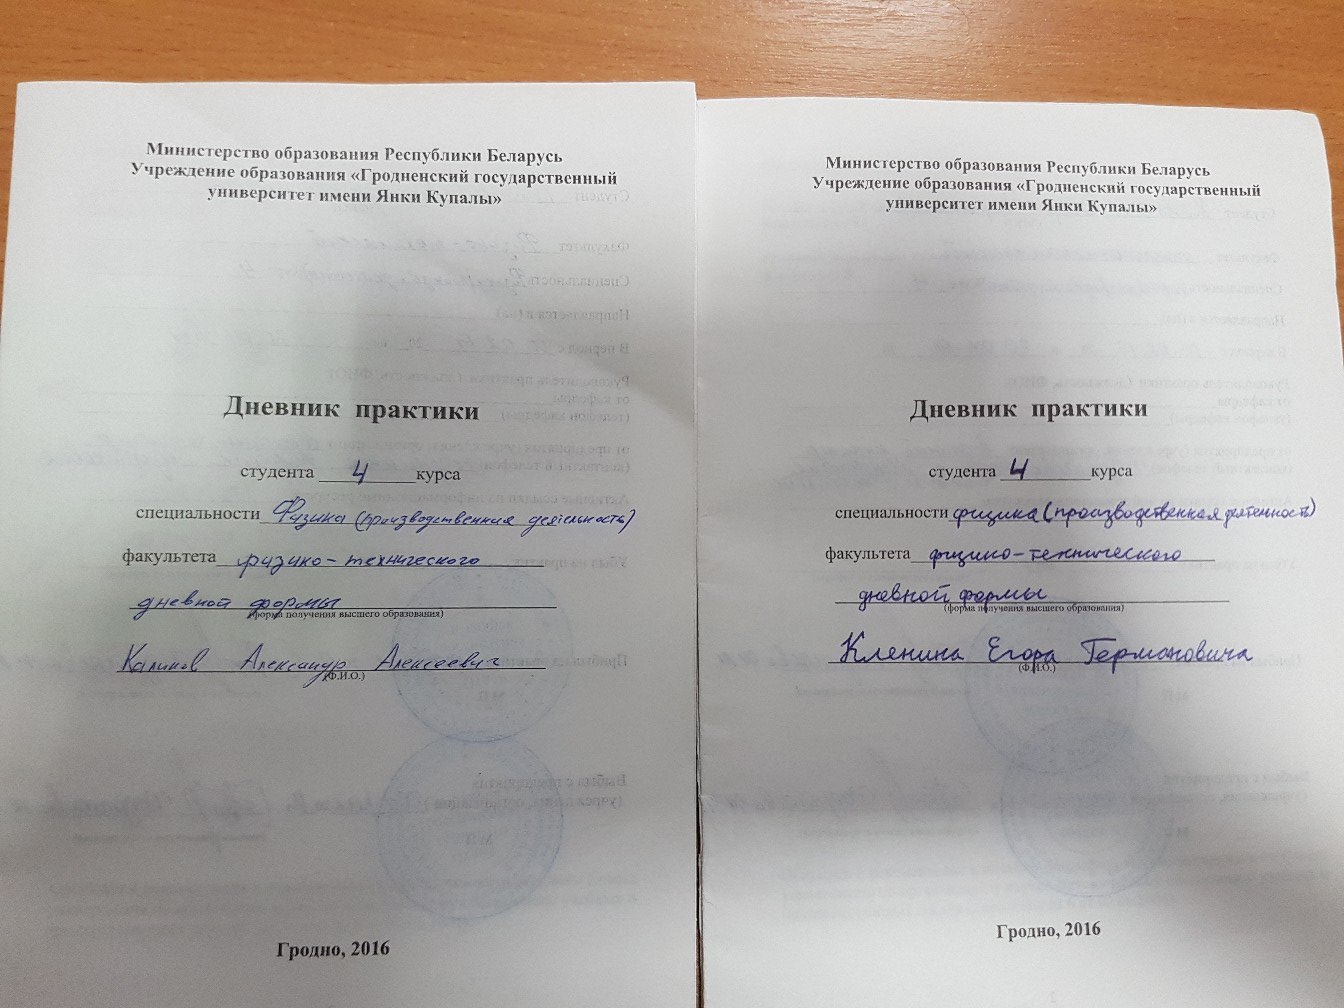 Министерство образования Республики Беларусь
Учреждение образования «Гродненский государственный
университет имени Янки Купалы»
Дневник практики
студента 4 курса
специальности Физика (производственная деятельность)
факультета физико-технического
дневной формы
(форма получения высшего образования)
Калинов Александр Алексеевич
(Ф.И.О.)
Гродно, 2016
Министерство образования Республики Беларусь
Учреждение образования «Гродненский государственный
университет имени Янки Купалы»
Дневник практики
студента 4 курса
специальности физика (производственная деятельность)
факультета физико-технического
дневной формы
(форма получения высшего образования)
Кленина Егора Германовича
(Ф.И.О.)
Гродно, 2016